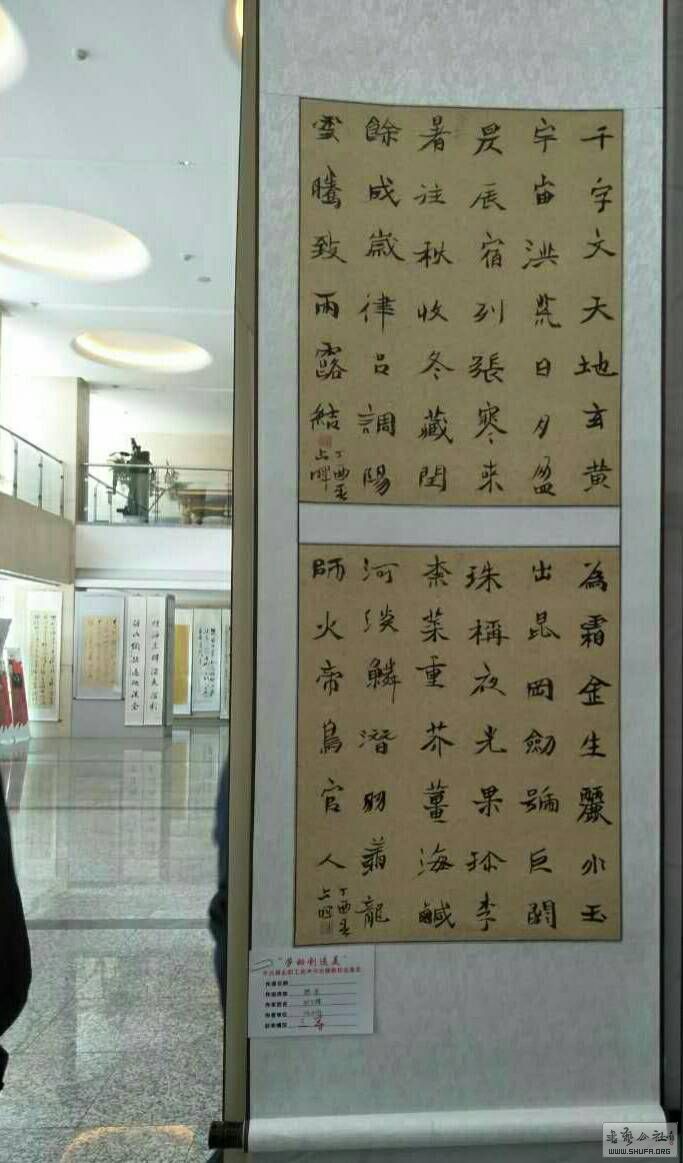 千字文天地玄黄
宇宙洪荒日月盈
昃辰宿列張寒来
暑往秋收冬藏閏
餘成歲律吕調陽
雲騰致雨露結
丁酉春
為霜金生麗水玉
出昆岡劒號巨闕
珠稱夜光果珍李
柰菜重芥薑海鹹
河淡鱗潛羽翔龍
師火帝鳥官人
丁酉春
"劳动创造美"
作者姓名
作者单位
三等
书艺公社
WWW.SHUFA.ORG